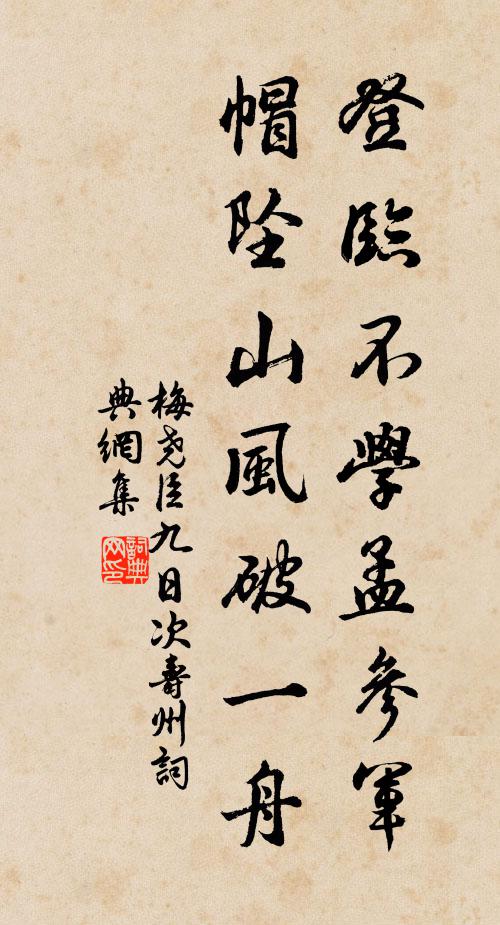 登臨不學孟參軍
帽墜山風破一舟
梅堯臣九日次壽州詞
典網集
詞典
网印